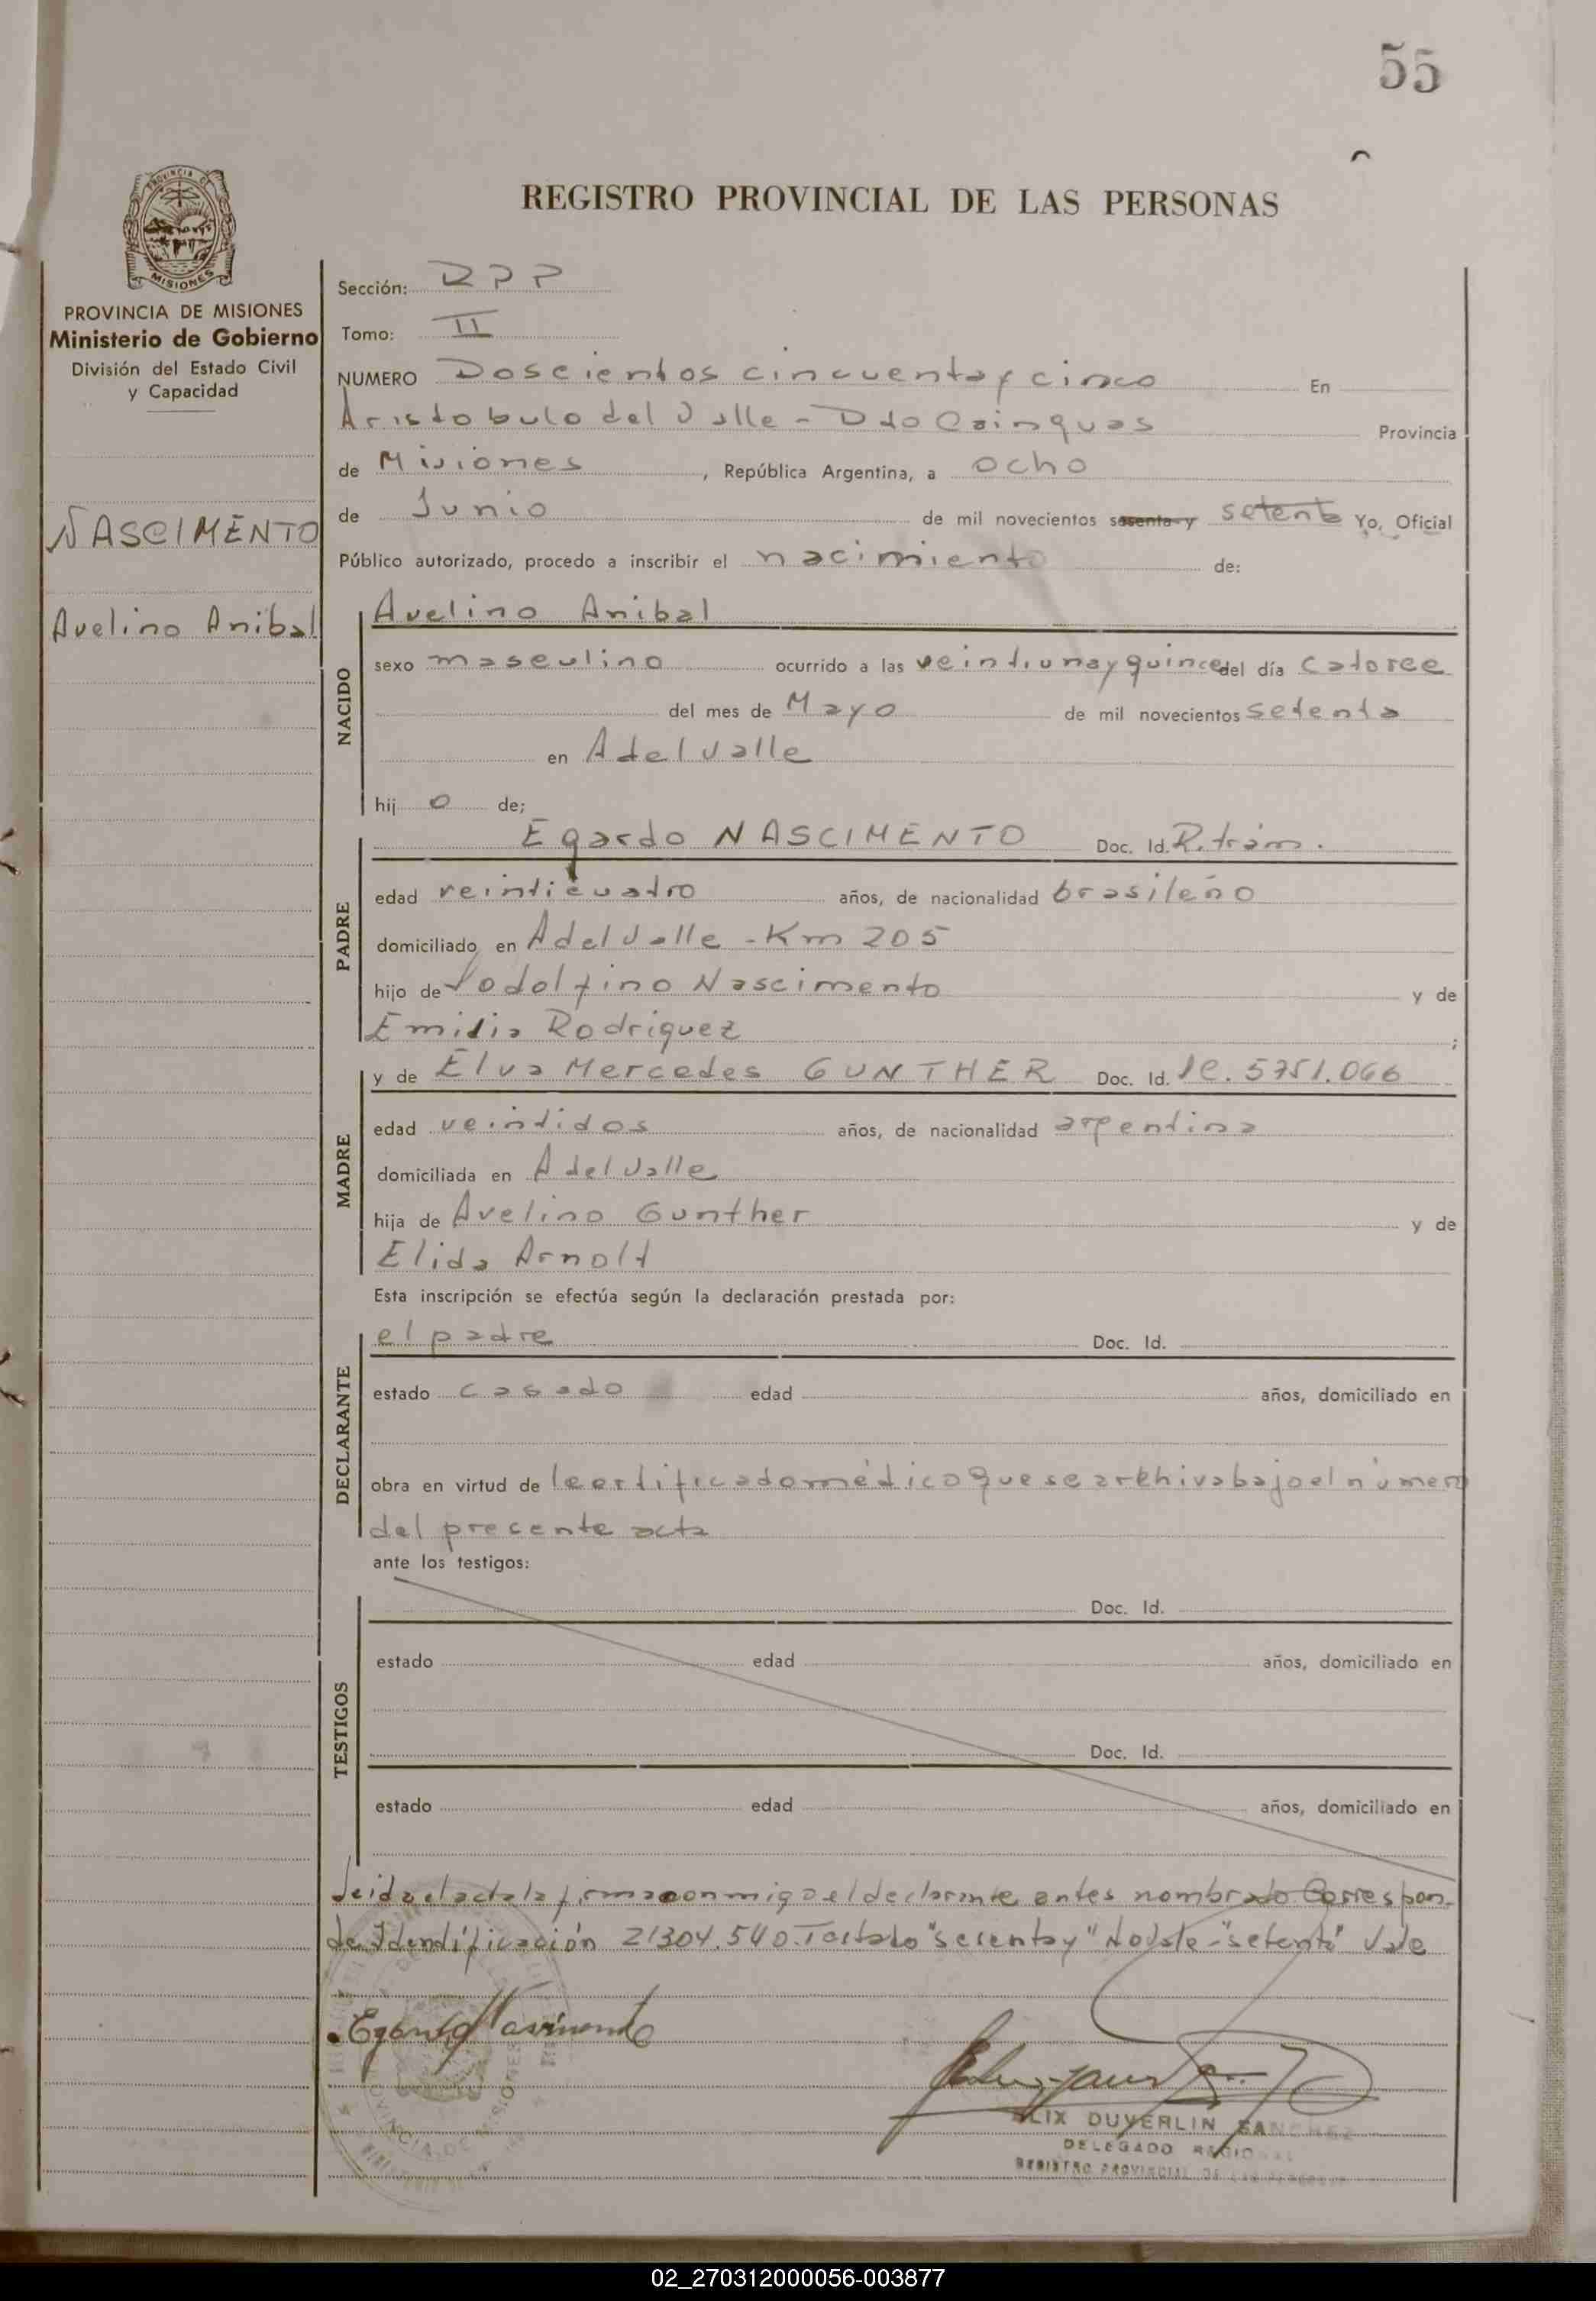 55
REGISTRO PROVINCIAL DE LAS PERSONAS
PROVINCIA DE MISIONES
Ministerio de Gobierno
División del Estado Civil
y Capacidad
NASCIMENTO
Avelino Anibal
Sección: RPP
Tomo: II
NUMERO Doscientos cincuenta y cinco En
Aristobulo del Valle - Dto Cainguas Provincia
de Misiones, República Argentina, a ocho
de Junio de mil novecientos sesenta y setenta Yo, Oficial
Público autorizado, procedo a inscribir el nacimiento de:
NACIDO
Avelino Anibal
sexo masculino ocurrido a las veintiuna y quince del día catorce
del mes de Mayo de mil novecientos setenta
en A del Valle
hij o de;
PADRE
Egardo NASCIMENTO Doc. Id. R. trám.
edad veinticuatro años, de nacionalidad brasileño
domiciliado en A del Valle - Km 205
hijo de Nascimento y de
Emilia Rodriguez ;
MADRE
y de Elva Mercedes GUNTHER Doc. Id. lc. 5751.066
edad veintidos años, de nacionalidad argentina
domiciliada en A del Valle
hija de Avelino Gunther y de
Elida Arnold
Esta inscripción se efectúa según la declaración prestada por:
DECLARANTE
el padre Doc. Id.
estado casado edad años, domiciliado en
obra en virtud de certificado médico que se archiva bajo el número
del precente acta
ante los testigos:
TESTIGOS
Doc. Id.
estado edad años, domiciliado en
Doc. Id.
estado edad años, domiciliado en
Leida el acta la firma conmigo el declarante antes nombrado. Correspon-
de Identificación 21304.540. Testado "secenta y" No vale - "setenta" Vale
Egardo Nascimento
FELIX DUVERLIN SANCHEZ
DELEGADO REGIONAL
REGISTRO PROVINCIAL DE LAS PERSONAS
02_270312000056-003877